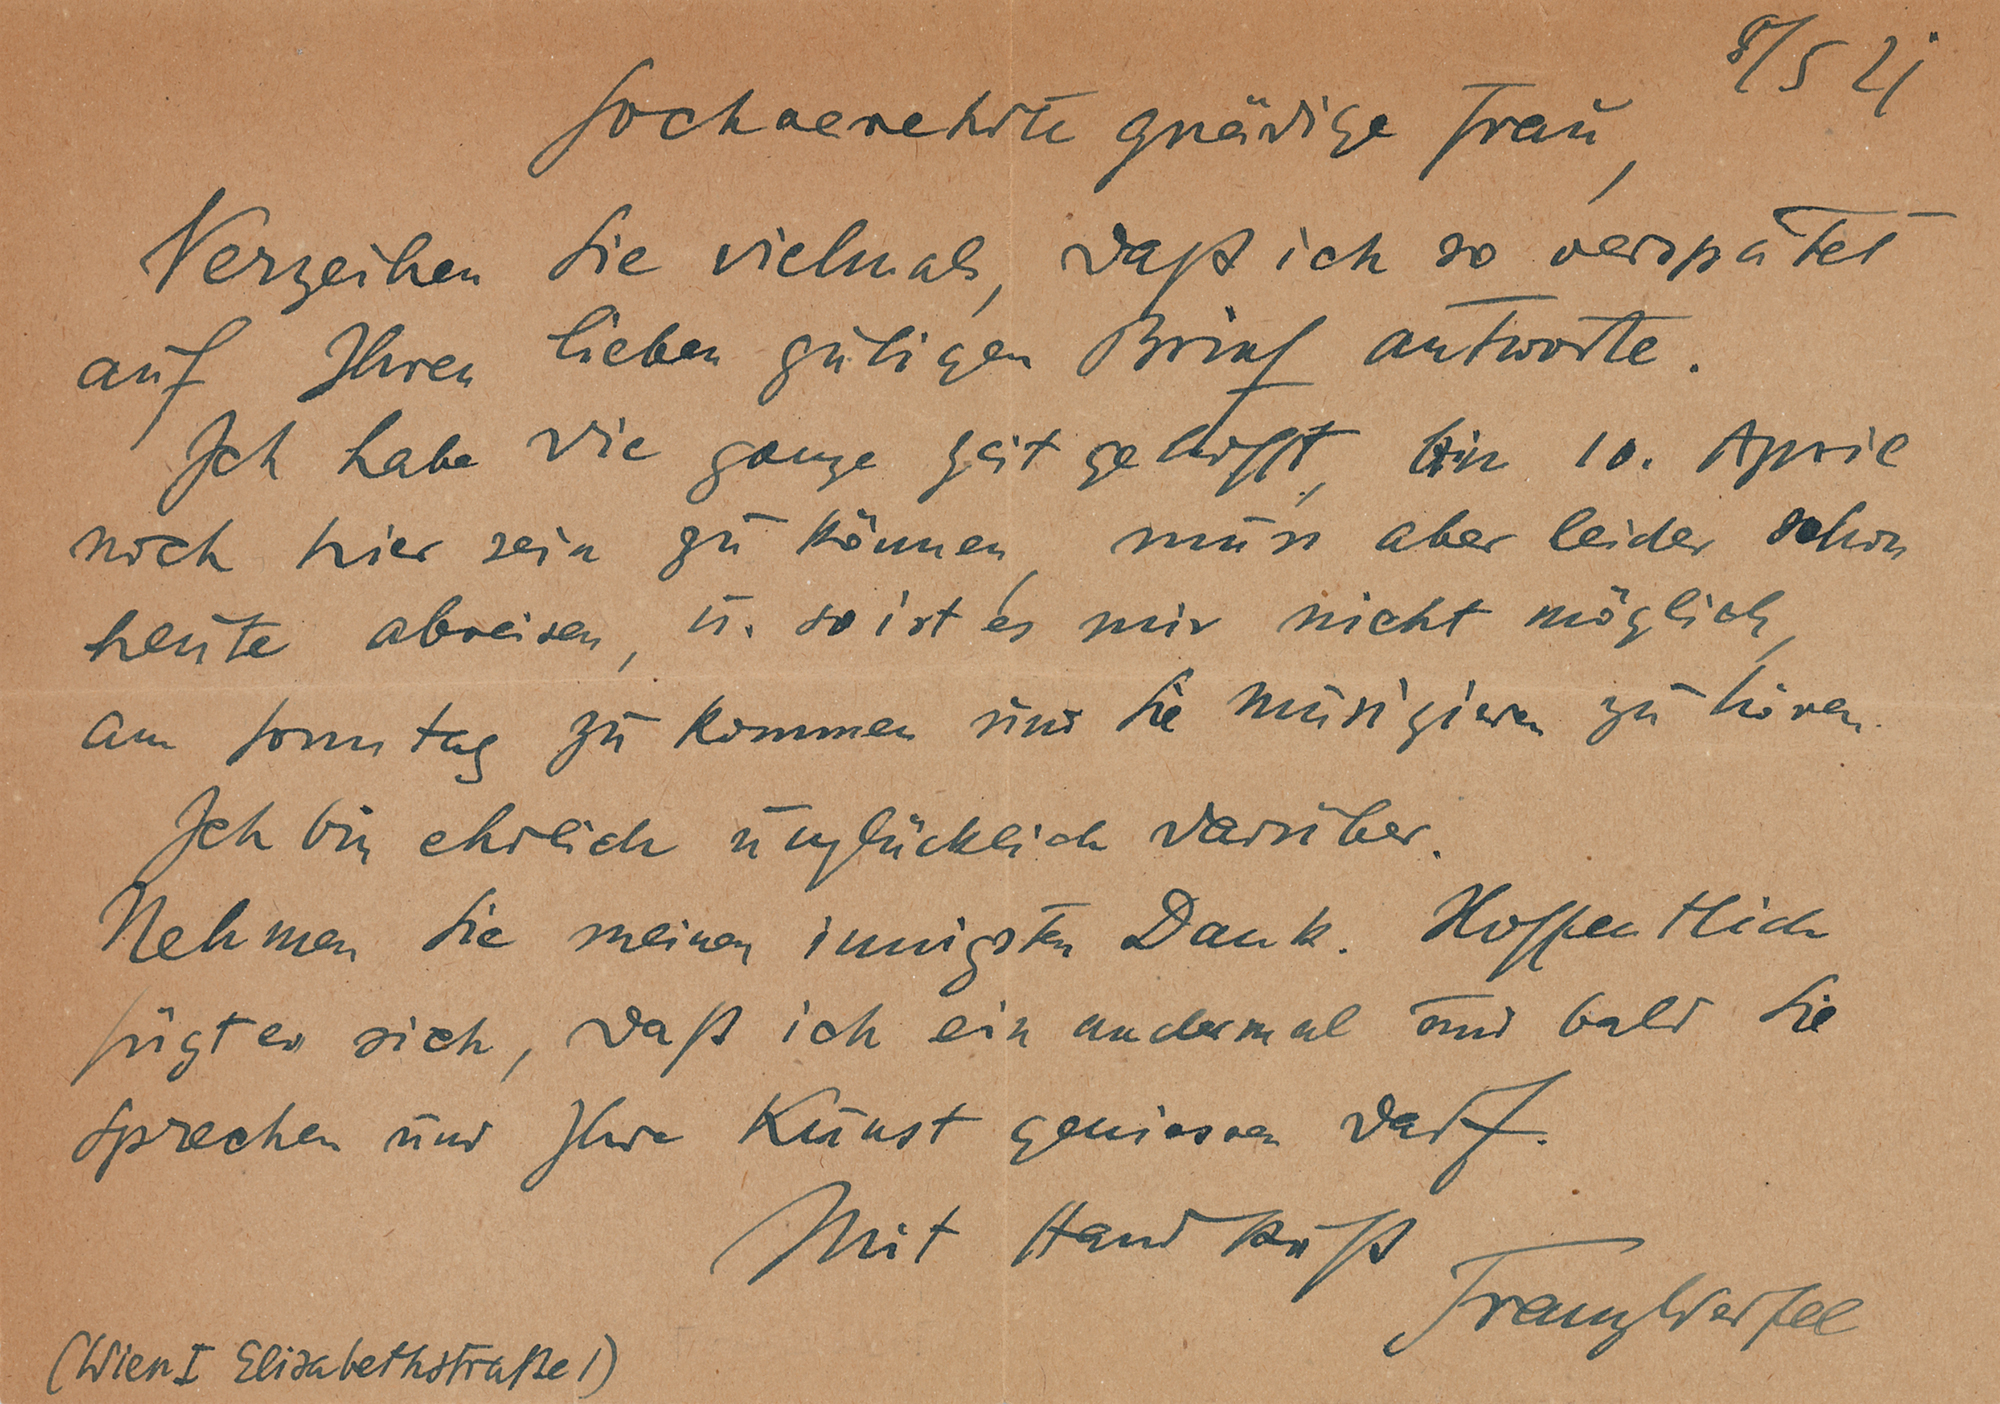 8/5 21
Hochverehrte gnädige Frau,
Verzeihen Sie vielmals, daß ich so verspätet
auf Ihren lieben gütigen Brief antworte.
Ich habe die ganze Zeit gehofft, bin 10. April
noch hier sein zu können, muss aber leider schon
heute abreisen, u. so ist es mir nicht möglich,
am Sonntag zu kommen und Sie musizieren zu hören.
Ich bin ehrlich unglücklich darüber.
Nehmen Sie meinen innigsten Dank. Hoffentlich
fügt es sich, daß ich ein andermal und bald Sie
sprechen und Ihre Kunst geniessen darf.
Mit Handkuß
Franz Werfel
(Wien I Elisabethstraße 1)